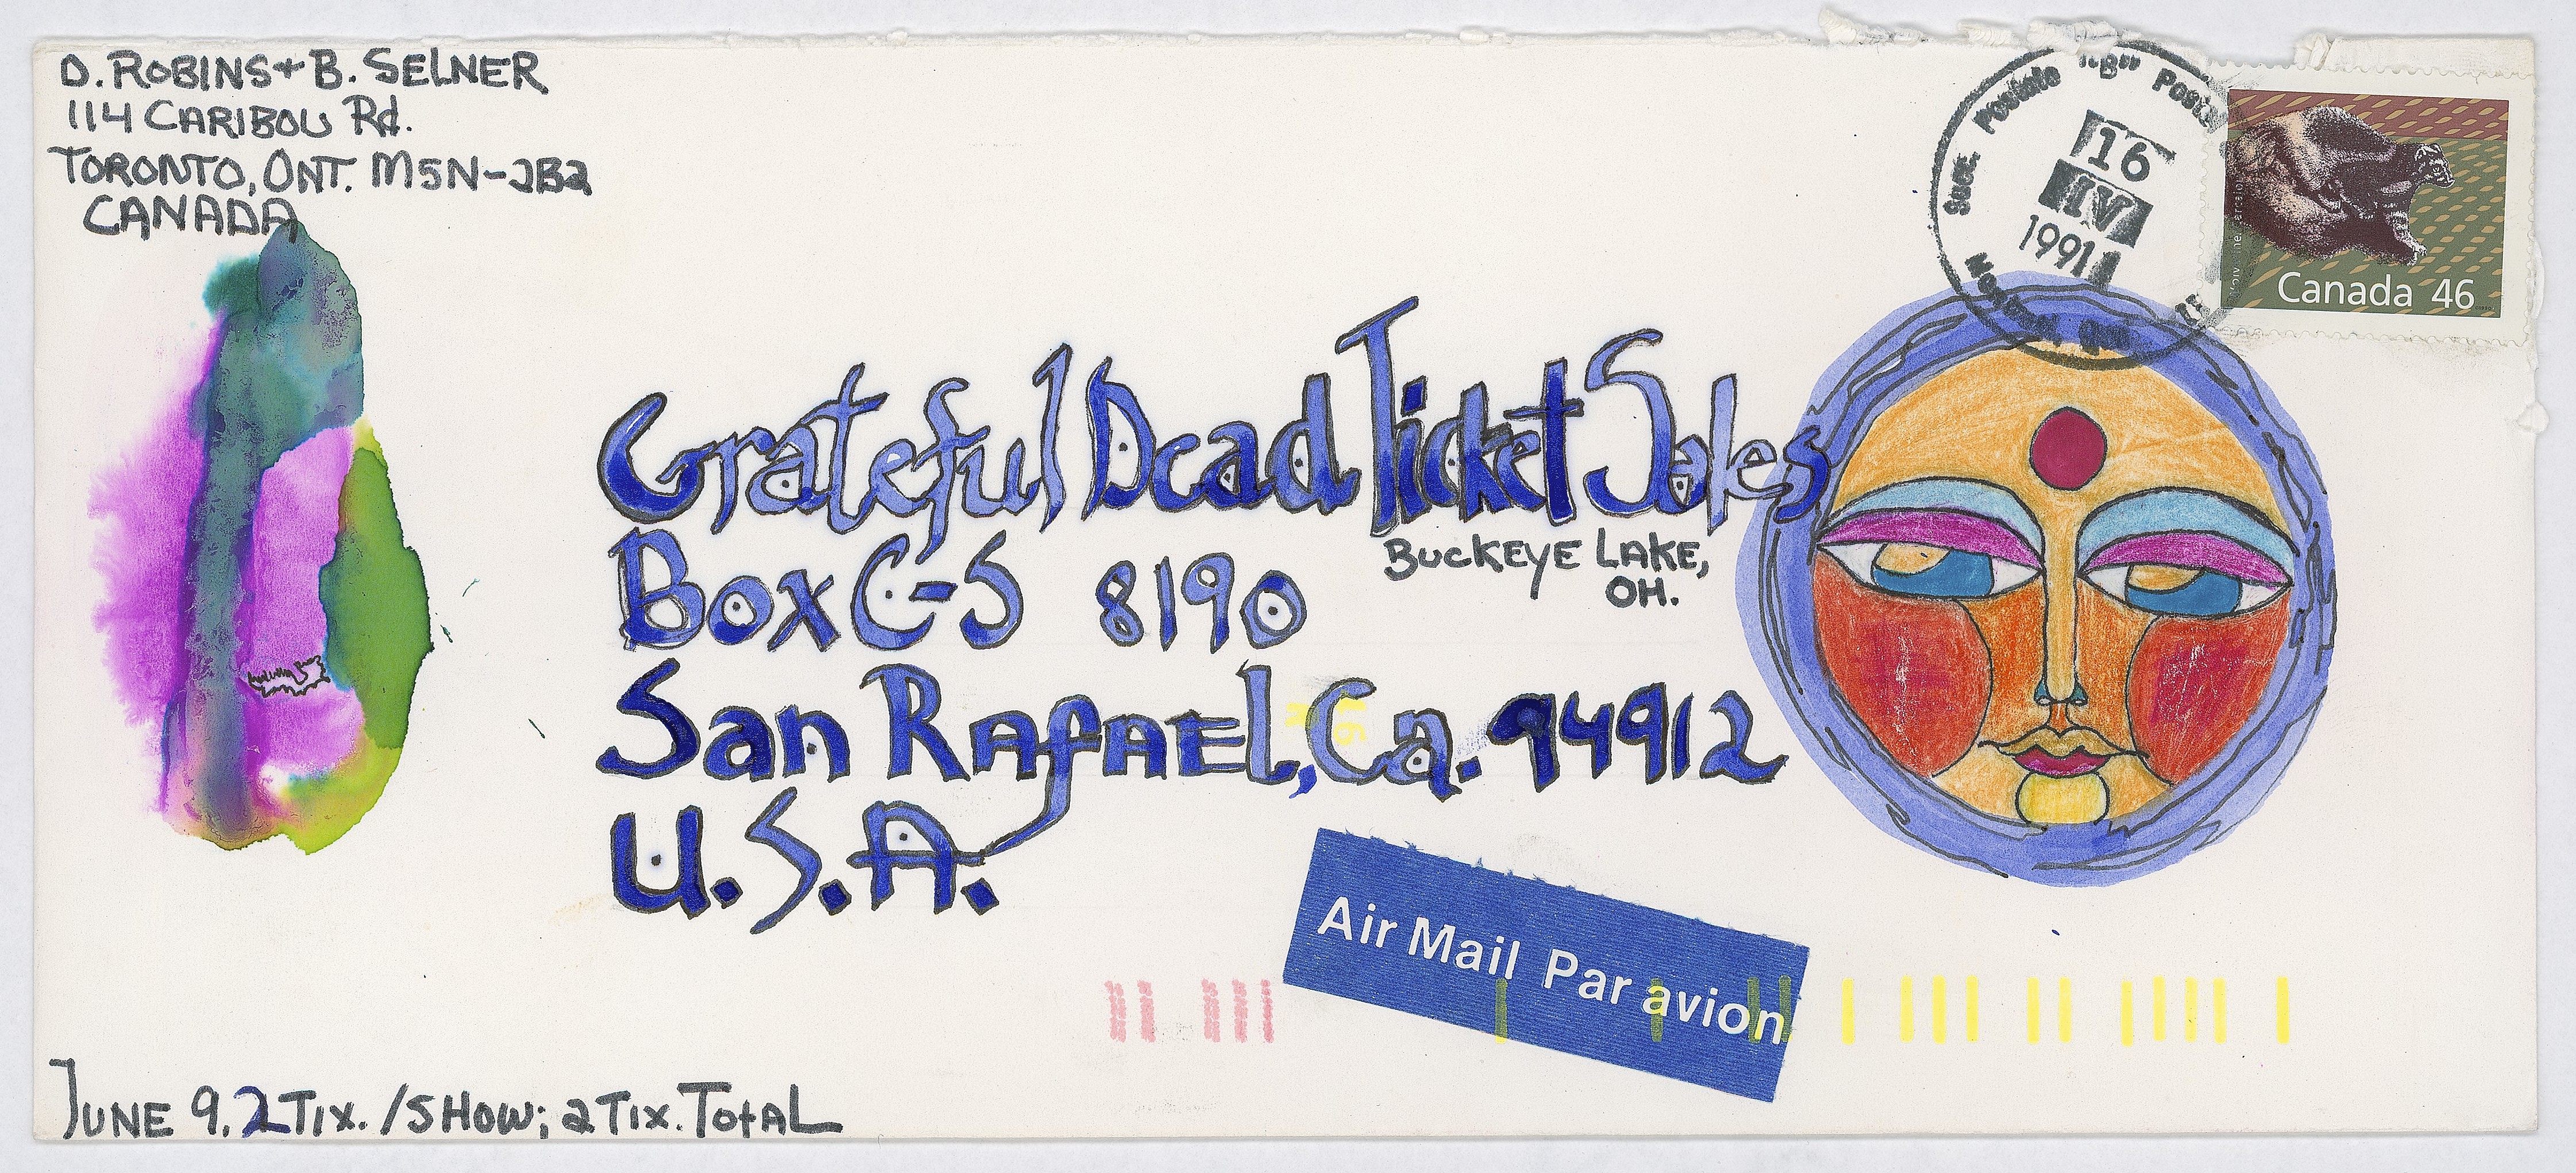 D. ROBINS + B. SELNER
114 CARIBOU Rd.
TORONTO, ONT. M5N-2B2
CANADA
Succ. Postale "B" Postal
16
IV
1991
Canada 46
Grateful Dead Ticket Sales
BUCKEYE LAKE,
OH.
Box C-S 8190
San RAfAEl, Ca. 94912
U.S.A.
Air Mail Par avion
JUNE 9. 2 TIX. /SHOW; 2 TIX. TOtAL